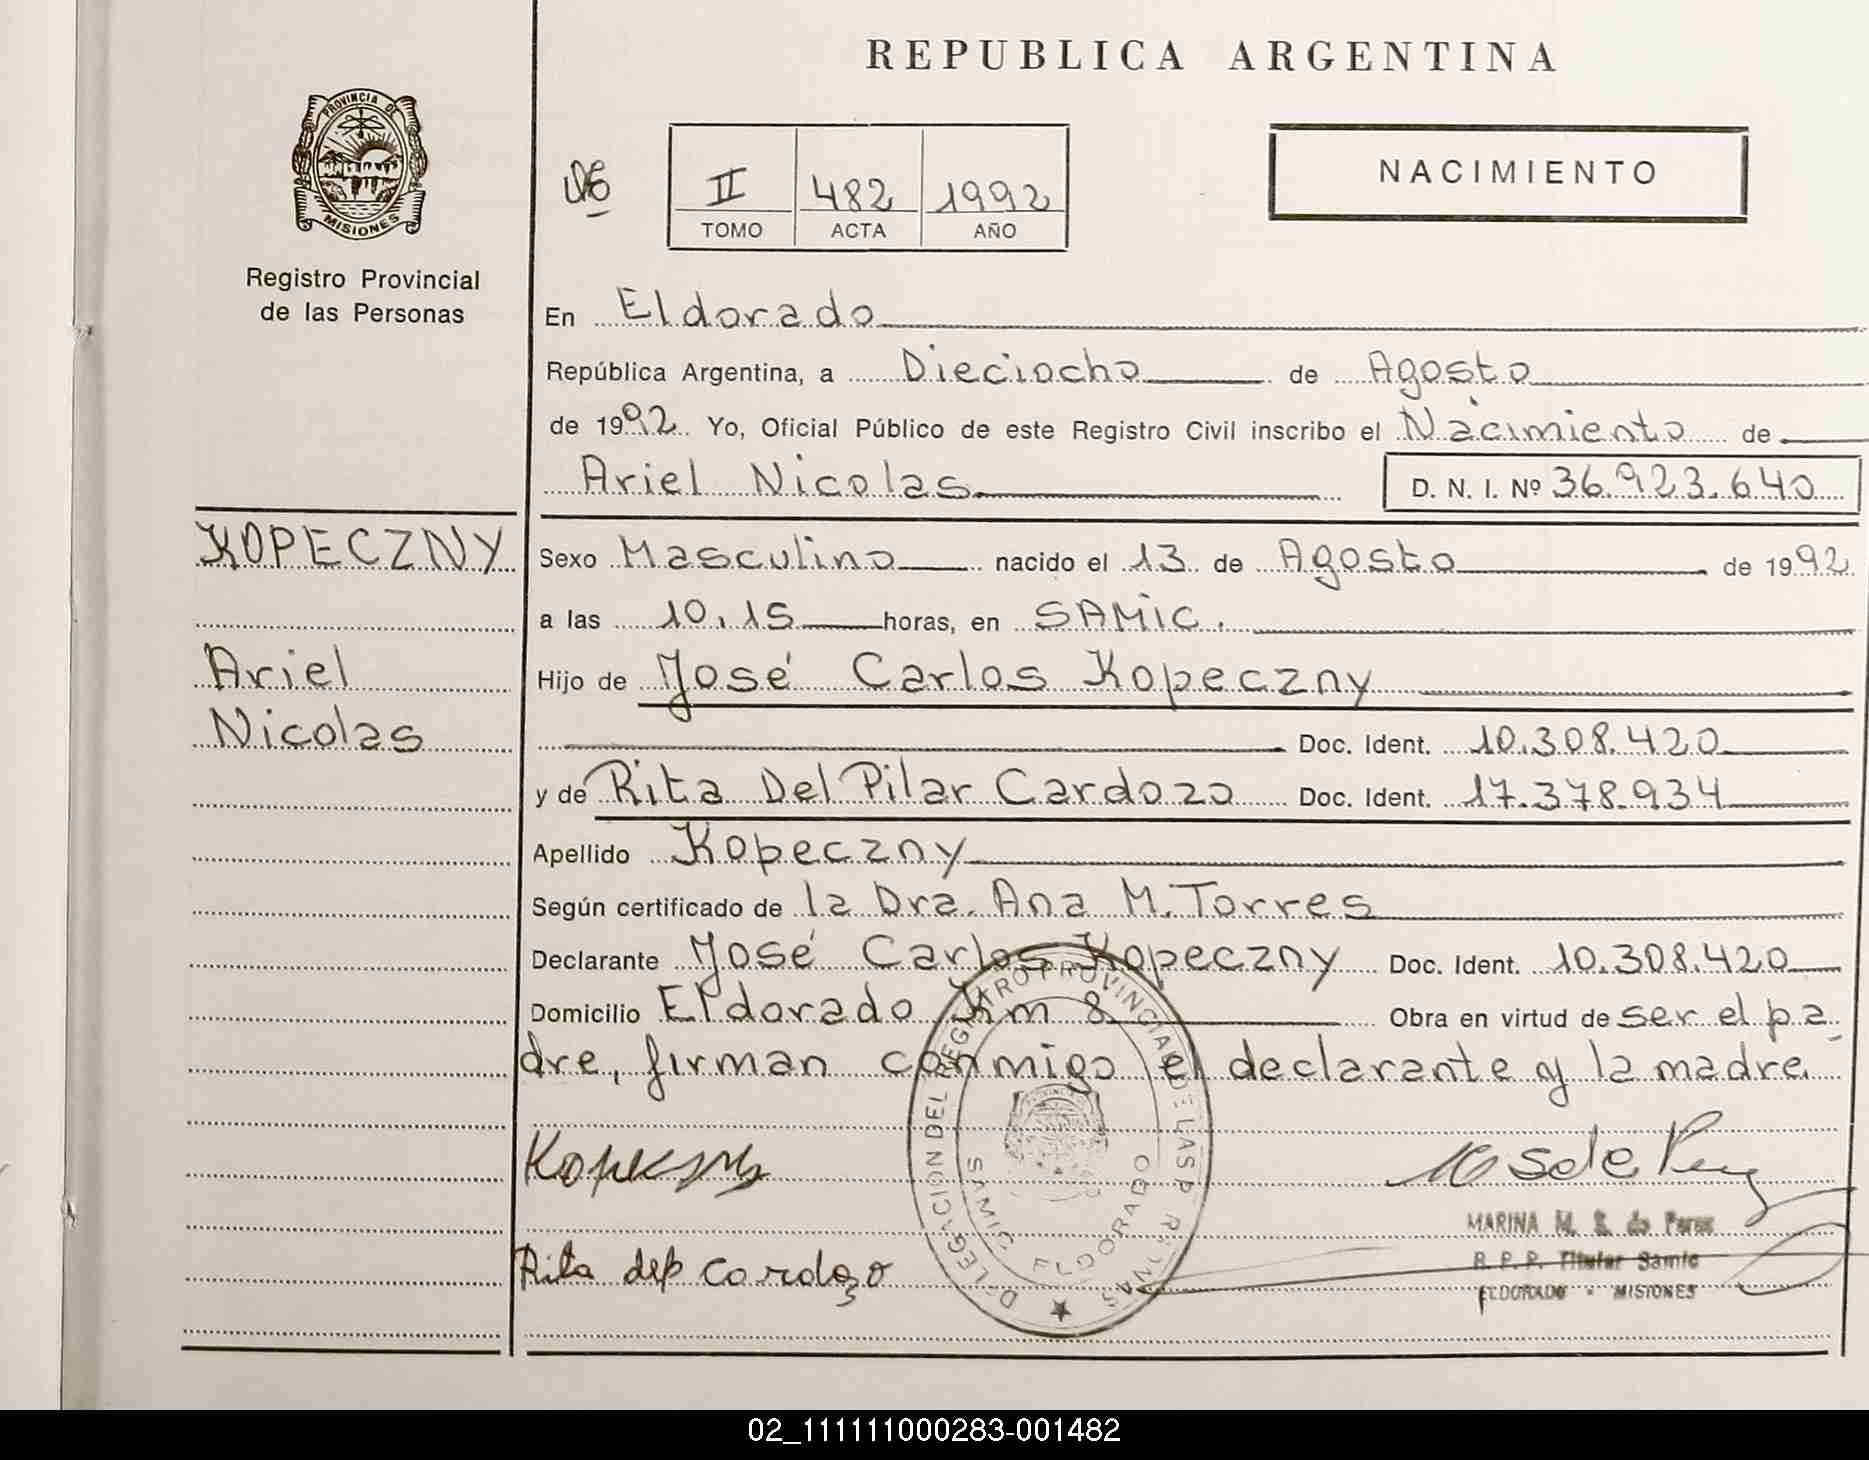 REPUBLICA ARGENTINA
PROVINCIA DE
MISIONES
Registro Provincial
de las Personas
II 482 1992
TOMO ACTA AÑO
NACIMIENTO
En Eldorado
República Argentina, a Dieciocho de Agosto
de 1992. Yo, Oficial Público de este Registro Civil inscribo el Nacimiento de
Ariel Nicolas D. N. I. Nº 36.923.640
KOPECZNY
Ariel
Nicolas
Sexo Masculino nacido el 13 de Agosto de 1992
a las 10,15 horas, en SAMIC.
Hijo de José Carlos Kopeczny
Doc. Ident. 10.308.420
y de Rita Del Pilar Cardozo Doc. Ident. 17.378.934
Apellido Kopeczny
Según certificado de la Dra. Ana M. Torres
Declarante José Carlos Kopeczny Doc. Ident. 10.308.420
Domicilio Eldorado Km 8 Obra en virtud de ser el pa-
dre, firman conmigo el declarante y la madre.
Kopeczny
Rita del P Cardozo
DELEGACION DEL REGISTRO PROVINCIAL DE LAS PERSONAS
SAMIC ELDORADO
MARINA M. S. de Perez
R. P. P. Titular Samic
ELDORADO - MISIONES
02_111111000283-001482